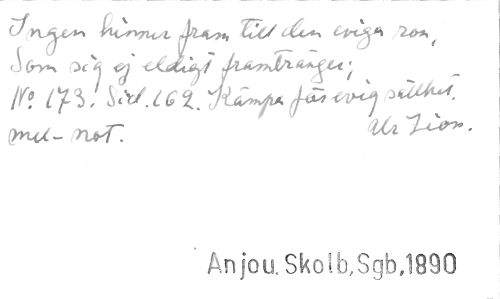 Ingen hinner fram till den eviga ron,
Som sig ej eldigt framtränger;
No. 173. Sid. 162. Kämpa för evig sällhet.
mel-not. Ur Zion.
Anjou. Skolb, Sgb, 1890